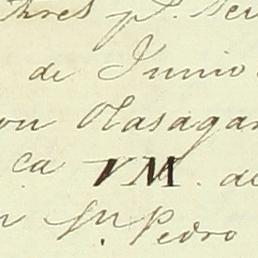 de Junio
on Olasagar
ca VM. de
Sn Pedro